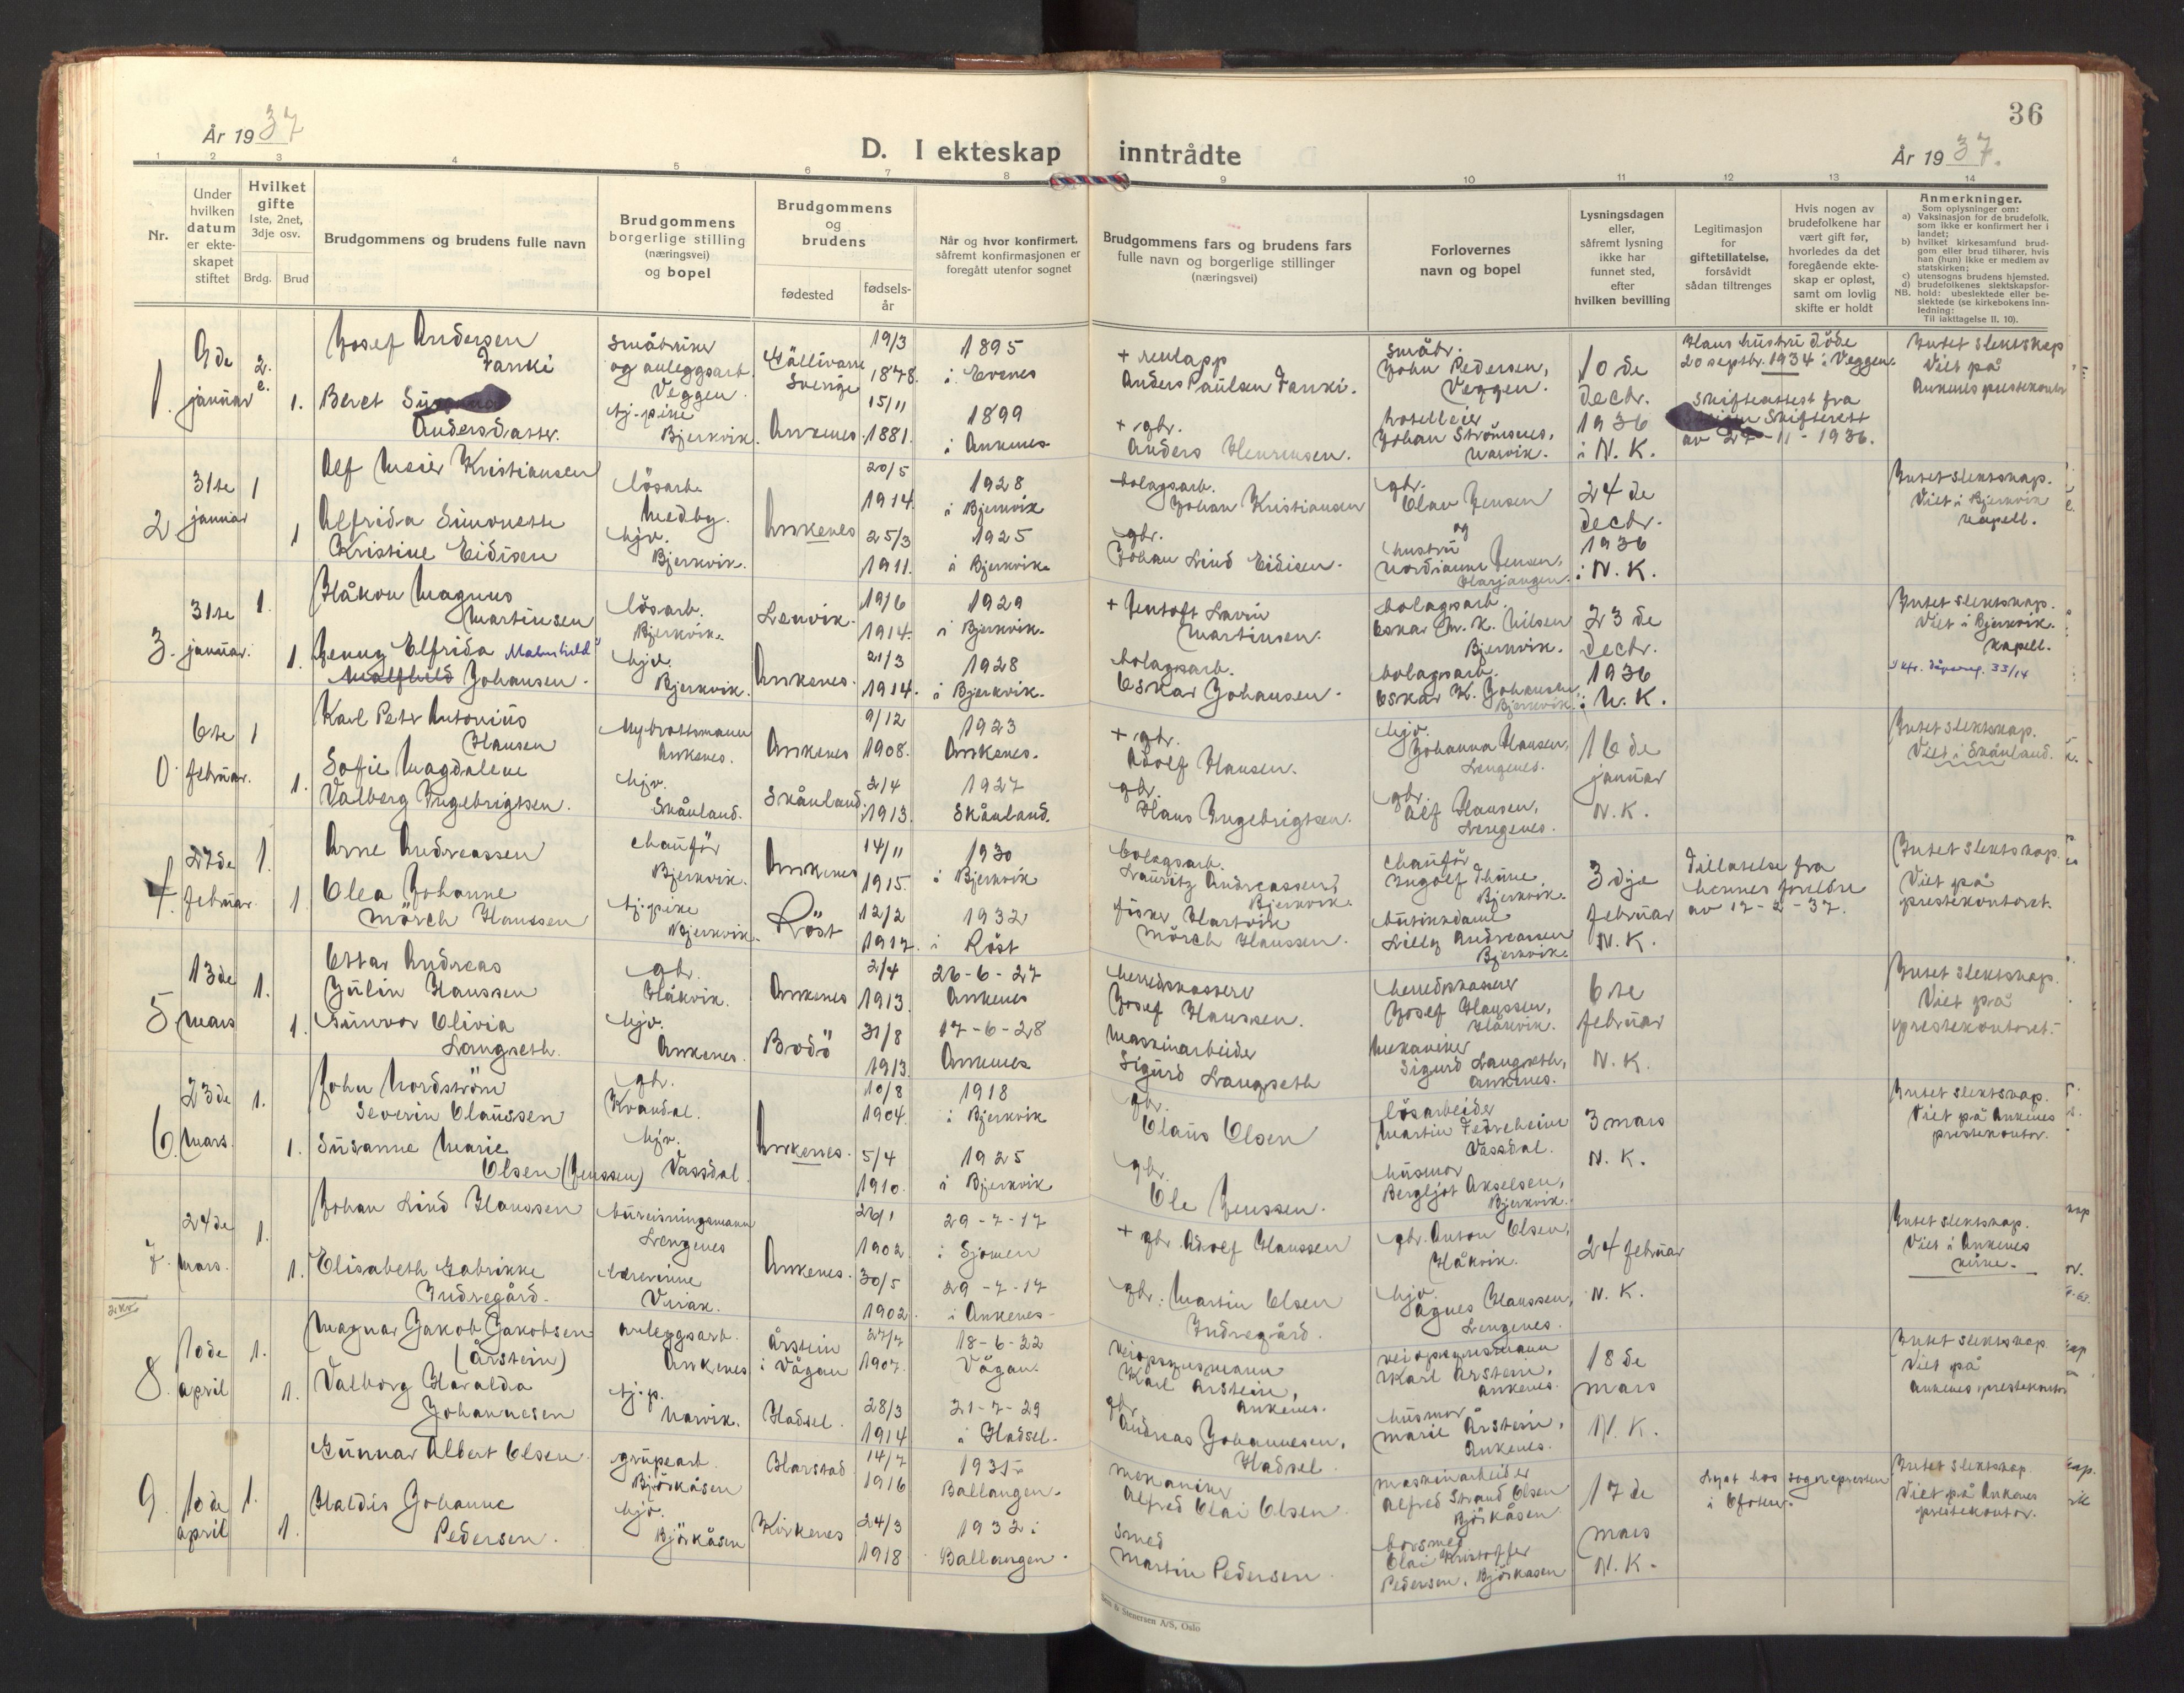 36
År 1937
D. I ekteskap inntrådte
År 1937.
1 2 3 4 5 6 7 8 9 10 11 12 13 14
Nr.
Under hvilken datum er ekteskapet stiftet
Hvilket gifte 1ste, 2net, 3dje osv.
Brdg. Brud
Brudgommens og brudens fulle navn
Brudgommens borgerlige stilling (næringsvei) og bopel
Brudgommens og brudens
fødested
fødselsår
Når og hvor konfirmert, såfremt konfirmasjonen er foregått utenfor sognet
Brudgommens fars og brudens fars fulle navn og borgerlige stillinger (næringsvei)
Forlovernes navn og bopel
Lysningsdagen eller, såfremt lysning ikke har funnet sted, efter hvilken bevilling
Legitimasjon for giftetillatelse, forsåvidt sådan tiltrenges
Hvis nogen av brudefolkene har vært gift før, hvorledes da det foregående ekteskap er opløst, samt om lovlig skifte er holdt
Anmerkninger.
Som oplysninger om:
a) Vaksinasjon for de brudefolk, som ikke er konfirmert her i landet;
b) hvilket kirkesamfund brudgom eller brud tilhører, hvis han (hun) ikke er medlem av statskirken;
c) utensogns brudens hjemsted.
d) brudefolkenes slektskapsforhold: ubeslektede eller beslektede (se kirkebokens innledning:
NB.
Til iakttagelse II, 10).
1. 9de januar 2. e. 1.
Josef Andersen Fanki
småbruker og anleggsarb. Veggen.
Gällivare Sverige
19/3 1878.
1895 i Evenes
+ reulapp Anders Paulsen Fanki.
småbr. John Pedersen, Veggen.
10de dectr. 1936 i N. K.
Hans hustru døde 20 septbr. 1934 i Veggen.
Skifteattest fra
Skifterett
av 27-11-1936.
Intet slektskap
Viet på
Ankenes prestekontor
Beret
Andersdatter.
tj.-pike Bjerkvik.
Ankenes
15/11 1881.
1899 i Ankenes
+ gbr. Anders Henriksen.
hotelleier Johan Strömsnes, Narvik.
2 31te januar 1 1
Alf Meier Kristiansen
lösarb. Medby.
Ankenes
20/5 1914.
1928 i Bjerkvik
bolagsarb. Johan Kristiansen
gbr. Olav Jensen
og hustru Nordianna Jensen, Harjangen.
24de dectr. 1936 i N. K.
Intet slektskap.
Viet i Bjerkvik
kapell.
Alfrida Simonette
Kristine Eidisen
hjv. Bjerkvik.
25/3 1911.
1925 i Bjerkvik
gbr. Johan Lind Eidisen.
3. 31te januar. 1. 1.
Håkon Magnus Martinsen
lösarb. Bjerkvik.
Lenvik.
19/6 1914.
1929 i Bjerkvik.
+ Hentoft Lavin Martinsen.
bolagsarb. Oskar Chr. K. Nilsen Bjerkvik.
23de dectr. 1936 i N. K.
Intet slektskap.
Viet i Bjerkvik.
kapell.
Jenny Elfrida Malmhild
Johansen.
hjv. Bjerkvik.
Ankenes.
21/3 1914.
1928 i Bjerkvik.
bolagsarb. Oskar Johansen.
bolagsarb. Oskar K. Johansen, Bjerkvik.
0 6te februar. 1 1.
Karl Peter Antonius Hansen
Nybrottsmann Ankenes.
Ankenes
9/12 1908.
1923 Ankenes.
+ gbr. Adolf Hansen.
hjv. Johanna Hansen, Lengenes.
16de januar N. K.
Intet slektskap.
Viet i Skånland.
Sofie Magdalene
Valborg Ingebrigtsen.
hjv. Skånland.
Skånland.
2/4 1913.
1927 Skånland.
gbr. Hans Ingebrigtsen.
gbr. Alf Hansen, Lengenes.
4. 27de februar. 1. 1.
Arne Andreassen
chauför Bjerkvik.
Ankenes
14/11 1915.
1930 i Bjerkvik
bolagsarb. Lauritz Andreassen, Bjerkvik.
chauför Ingolf Thune Bjerkvik.
3dje februar N. K.
Tillatelse fra
hennes foreldre
av 17-2-37.
Intet slektskap.
Viet på
prestekontoret.
Olea Johanne
Mörch Hanssen
tj.-pike Bjerkvik.
Röst
12/2 1917.
1932 i Röst
fisker Hartvik Mörch Hanssen.
butikkdame Lilly Andreassen Bjerkvik.
5 13de mars 1. 1.
Ottar Andreas
Julin Hanssen
gbr. Håkvik.
Ankenes
2/4 1913.
26-6-27 Ankenes
herredskasserer Josef Hanssen.
herredskasserer Josef Hanssen, Håkvik.
6te februar N. K.
Intet slektskap.
Viet på
prestekontoret.
Gunvor Olivia
Langseth.
hjv. Ankenes.
Bodö
31/8 1913.
17-6-28 Ankenes
maskinarbeider Sigurd Langseth
mekaniker Sigurd Langseth, Ankenes.
6. 23de mars. 1. 1.
John Nordström
Severin Olaussen
gbr. Kvandal.
Ankenes.
10/8 1904.
1918 i Bjerkvik
gbr. Olaus Olsen
lösarbeider Martin Fedreheim Vassdal.
3 mars N. K.
Intet slektskap.
Viet på Ankenes
prestekontor.
Susanne Marie
Olsen (Jenssen)
hjv. Vassdal
5/4 1910.
1925 i Bjerkvik
gbr. Ole Jenssen.
husmor Bergljot Akselsen, Bjerkvik.
7. 24de mars. 1. 1.
Johan Lind Hanssen
bureisningsmann Lengenes
Ankenes.
26/1 1902.
29-7-17 i Sjomen
+ gbr. Adolf Hanssen
gbr. Anton Olsen, Håkvik.
24 februar N. K.
Intet slektskap.
Viet i Ankenes
kirke.
Elisabeth Gabrikke
Indregård.
lærerinne Virak.
30/5 1902.
29-7-17 i Ankenes
gbr. Martin Olsen Indregård.
hjv. Agnes Hanssen, Lengenes.
8. 10de april 1. 1.
Magnar Jakob Jakobsen
(Årstein)
anleggsarb. Ankenes
Årstein i Vågan
27/7 1907.
18-6-22 Vågan.
veiopsynsmann Karl Årstein, Ankenes.
veiopsynsmann Karl Årstein, Ankenes.
18de mars N. K.
Intet slektskap
Viet på
Ankenes prestekontor
Valborg Haralda
Johannesen
tj.-p. Narvik.
Hadsel.
28/3 1914
21-7-29 i Hadsel.
gbr. Andreas Johannesen, Hadsel.
husmor Marie Årstein, Ankenes.
9. 10de april 1. 1.
Gunnar Albert Olsen.
grubearb. Bjørkåsen
Harstad
14/7 1916
1931 Ballangen.
mekaniker Alfred Olai Olsen.
maskinarbeider Alfred Strand Olsen Björkåsen
17de mars N. K.
Lyst hos sognepresten
i Ofoten.
Intet slektskap
Viet på Ankenes
prestekontor.
Haldis Johanne
Pedersen.
hjv. Björkåsen
Kirkenes
24/3 1918
1932 i Ballangen.
smed Martin Pedersen.
borsmed Olai Kristoffer Pedersen, Björkåsen
Stenersen A/S, Oslo